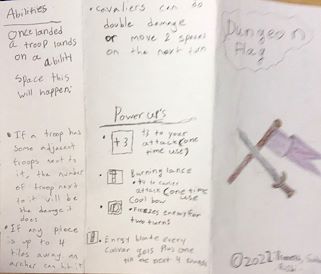 Abilities
Once landed
a troop lands
on a ability
space this
will happen:
• If a troop has
some adjacent
troops next to
it, the number
of troop next
to it will be
the damage it
does
• If any piece
is up to 4
tiles away an
archer can hit it
• cavaliers can do
double damage
or move 2 spaces
on the next turn
Power up's
+3
+3 to your
attack (one
time use)
Burning lance
attack (one time use)
Cool bow
• Freezes enemy for
two turns
Energy blade every
next 4 rounds
Dungeon
Flag
©2022